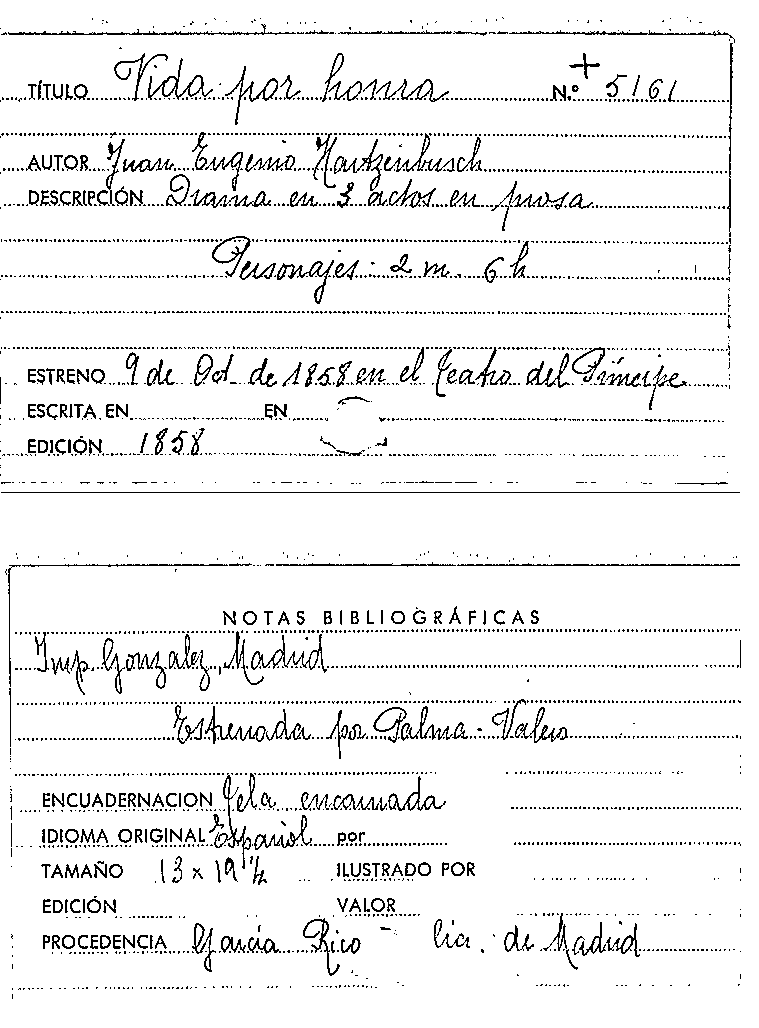 TÍTULO Vida por honra N.º + 5161
AUTOR Juan Eugenio Hartzenbusch
DESCRIPCIÓN Drama en 3 actos en prosa
Personajes - 2 m. 6 h
ESTRENO 9 de Oct. de 1858 en el teatro del Príncipe
ESCRITA EN EN
EDICIÓN 1858
NOTAS BIBLIOGRÁFICAS
Imp. Gonzalez, Madrid
Estrenada por Palma - Valero
ENCUADERNACION Tela encarnada
IDIOMA ORIGINAL Español por
TAMAÑO 13 x 19 ½ ILUSTRADO POR
EDICIÓN VALOR
PROCEDENCIA García Rico - de Madrid